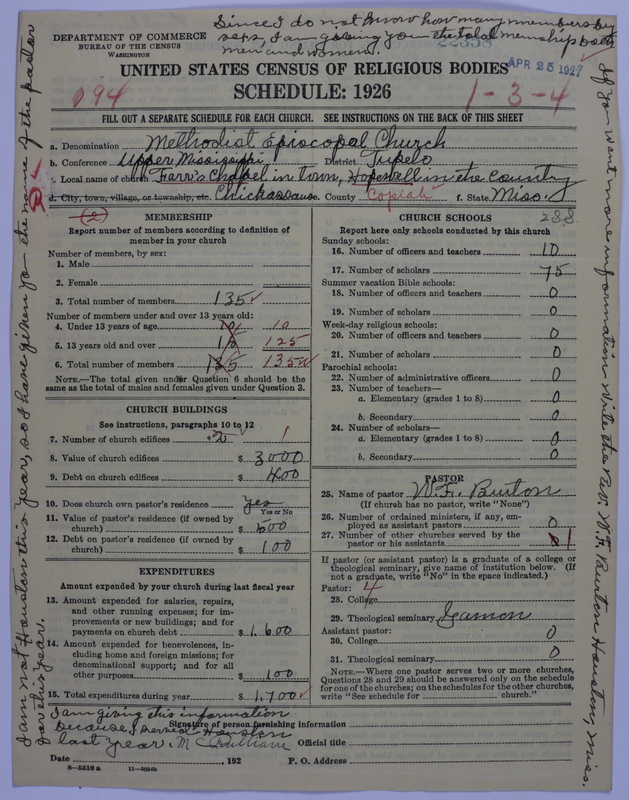 Since I do not know how many members by
sex, I am giving you the total membership both
men and women.
DEPARTMENT OF COMMERCE
BUREAU OF THE CENSUS
WASHINGTON
APR 25 1927
UNITED STATES CENSUS OF RELIGIOUS BODIES
SCHEDULE: 1926
094
1-3-4
FILL OUT A SEPARATE SCHEDULE FOR EACH CHURCH. SEE INSTRUCTIONS ON THE BACK OF THIS SHEET
a. Denomination Methodist Episcopal Church
b. Conference Upper Mississippi District Tupelo
c. Local name of church Farr's Chapel in town, Hopewell in the country
d. City, town, village, or township, etc. Chickasaw e. County Copiah f. State Miss.
(2)
238
MEMBERSHIP
Report number of members according to definition of
member in your church
Number of members, by sex:
1. Male
2. Female
3. Total number of members 135
Number of members under and over 13 years old:
4. Under 13 years of age 10 10
5. 13 years old and over 125
6. Total number of members 135 135
NOTE.—The total given under Question 6 should be the
same as the total of males and females given under Question 3.
CHURCH BUILDINGS
See instructions, paragraphs 10 to 12
7. Number of church edifices 2 1
8. Value of church edifices $ 3000
9. Debt on church edifices $ 400
10. Does church own pastor's residence Yes
Yes or No
11. Value of pastor's residence (if owned by
church) $ 600
12. Debt on pastor's residence (if owned by
church) $ 100
EXPENDITURES
Amount expended by your church during last fiscal year
13. Amount expended for salaries, repairs,
and other running expenses; for im-
provements or new buildings; and for
payments on church debt $ 1,600
14. Amount expended for benevolences, in-
cluding home and foreign missions; for
denominational support; and for all
other purposes $ 100
15. Total expenditures during year $ 1,700
CHURCH SCHOOLS
Report here only schools conducted by this church
Sunday schools:
16. Number of officers and teachers 10
17. Number of scholars 75
Summer vacation Bible schools:
18. Number of officers and teachers 0
19. Number of scholars 0
Week-day religious schools:
20. Number of officers and teachers 0
21. Number of scholars 0
Parochial schools:
22. Number of administrative officers 0
23. Number of teachers—
a. Elementary (grades 1 to 8) 0
b. Secondary 0
24. Number of scholars—
a. Elementary (grades 1 to 8) 0
b. Secondary 0
PASTOR
25. Name of pastor W.F. Burton
(If church has no pastor, write "None")
26. Number of ordained ministers, if any, em-
ployed as assistant pastors 0
27. Number of other churches served by the
pastor or his assistants 1
If pastor (or assistant pastor) is a graduate of a college or
theological seminary, give name of institution below. (If
not a graduate, write "No" in the space indicated.)
Pastor: 4
28. College
29. Theological seminary Gammon
Assistant pastor:
30. College 0
31. Theological seminary 0
NOTE.—Where one pastor serves two or more churches,
Questions 28 and 29 should be answered only on the schedule
for one of the churches; on the schedules for the other churches,
write "See schedule for church."
I am giving this information
because I served Houston
last year. M C Pulliam
Signature of person furnishing information
Official title
Date , 192 P. O. Address
8—5518 a 11—9054b
I am not Houston this year, so I have given you the name of the pastor
for this year.
If you want more information write the Rev. W. F. Burton Houston, Miss.